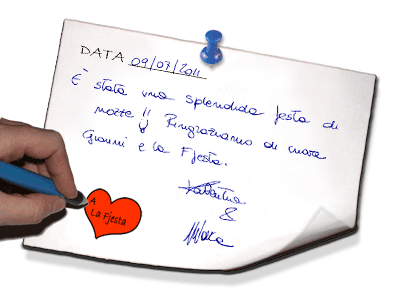 DATA 09/07/2011
E' stata una splendida festa di
nozze!! Ringraziamo di cuore
Gianni e la Fjesta.
Valentina
&
A
La Fjesta